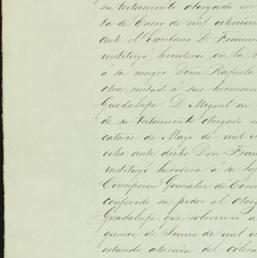 su testamento otorgado en
ta de Enero de mil ochocien
ante el Escribano D. Franci
instituyó heredera en la
á su muger Doña Rafaela
otra mitad á sus herman
Guadalupe D. Miguel
de su testamento otorgado
catorce de Mayo de mil
ocho ante dicho Don Fran
instituyó heredera á su
Concepcion Gonzalez de
conferido su poder al
Guadalupe, que
quince de Junio de mil
estando atacada del colera